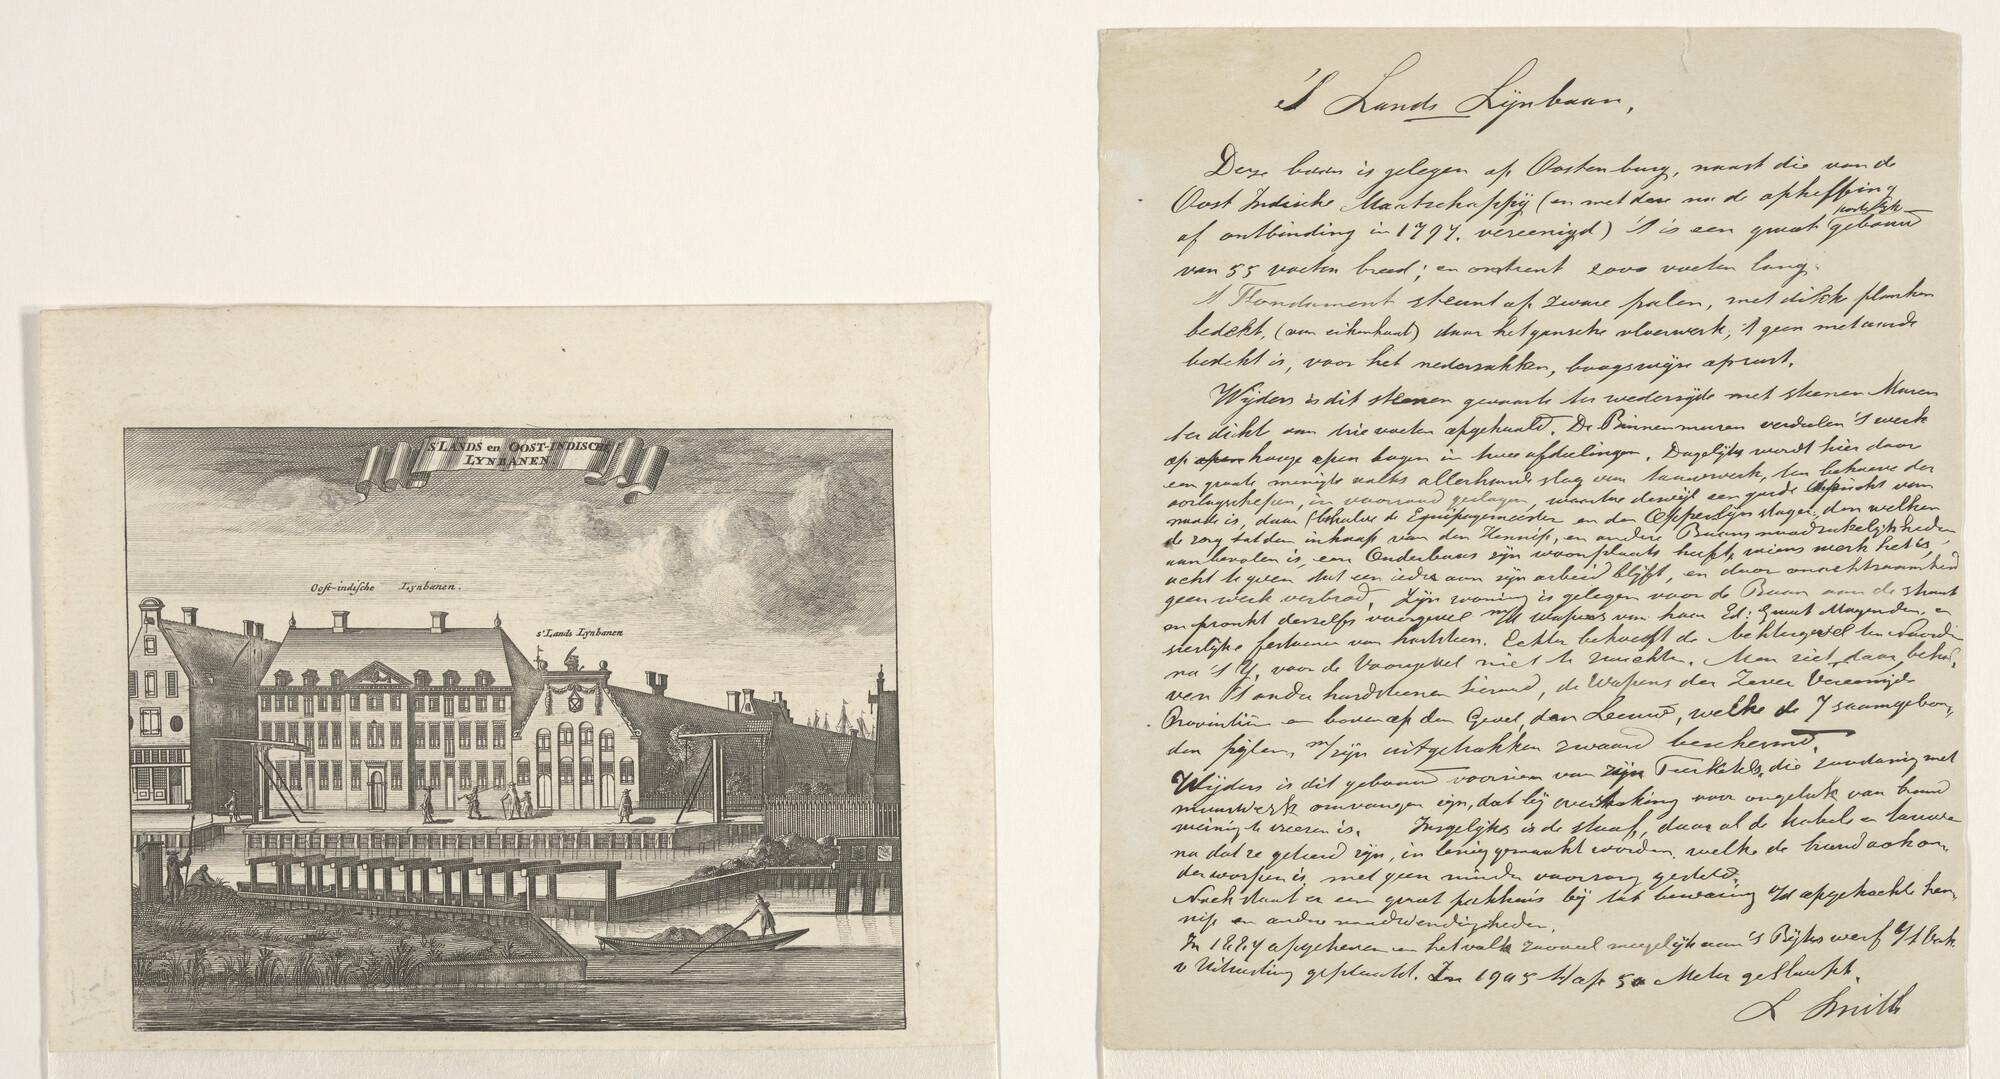 S'LANDS en OOST-INDISCHE
LYNBANEN.
Oost-indische Lynbanen.
s'Lands Lynbanen
'S Lands Lijnbaan,
Deze baan is gelegen op Oostenburg, naast die van de
Oost Indische Maatschappij (en met deze na de opheffing
of ontbinding in 1797. vereenigd) 't is een groot gebouw
van 55 voeten breed; en omtrent 2000 voeten lang.
't Fondament steunt op zware palen, met dikke planken
bedekt, (van eikenhout) daar het gansche vloerwerk, 't geen met aarde
bedekt is, voor het nederzakken, boogswijze op rust.
Wijders is dit steenen gevaarte ter wederzijde met steenen Muren
ter dikte van drie voeten opgehaald. De Binnenmuren verdeelen 't werk
op hooge open bogen in twee afdeelingen. Dagelijks wordt hier door
een groote menigte volks allerhande slag van touwwerk, ten behoeve der
oorlogschepen, in voorraad geslagen, waartoe dewijl een goede opzicht van
noode is, daar (behalve de Equipagemeester en den Opperlijnslager, den welken
de zorg tot den inkoop van den Hennip, en andere Baans noodzakelijkheden
aanbevolen is, een Onderbaas zijn woonplaats heeft, wiens werk het is,
acht te geven dat een ieder aan zijn arbeid blijft, en door onachtzaamheid
geen werk verbrod. Zijn woning is gelegen voor de Baan aan de straat
en pronkt derzelfs voorgevel m/t wapens van haar Ed: Groot Mogenden, en
sierlijke festoenen van hartsteen. Echter behoeft de Achtergevel ten Noorden
na 't Y, voor de Voorgevel niet te zwichten. Men ziet daar beha-
ven 't ander hardsteenen sieraad, de Wapens der Zeven Vereenigde
Provintiën en boven op den Gevel, den Leeuw, welke de 7 saamgebon-
den pijlen, m/zijn uitgetrokken zwaard beschermd.
Wijders is dit gebouw voorzien van zijn Teerketels, die zoodanig met
muurwerk omvangen zijn, dat bij overkoking voor ongeluk van brand
weinig te vreezen is. Insgelijks is de stoof, daar al de kabels en touwen
na dat ze geteerd zijn, in lenig gemaakt worden, welke de brand ook on-
derworpen is, met geen minder voorzorg gesteld.
Noch staat er een groot pakhuis bij tot bewaring v/d opgekochte hen-
nip en andere noodwendigheden.
In 1884 opgeheven en het volk zooveel mogelijk aan 's Rijks werf
v Uitrusting geplaatst. In 1905 tot op 50 Meter gesloopt.
L Smith